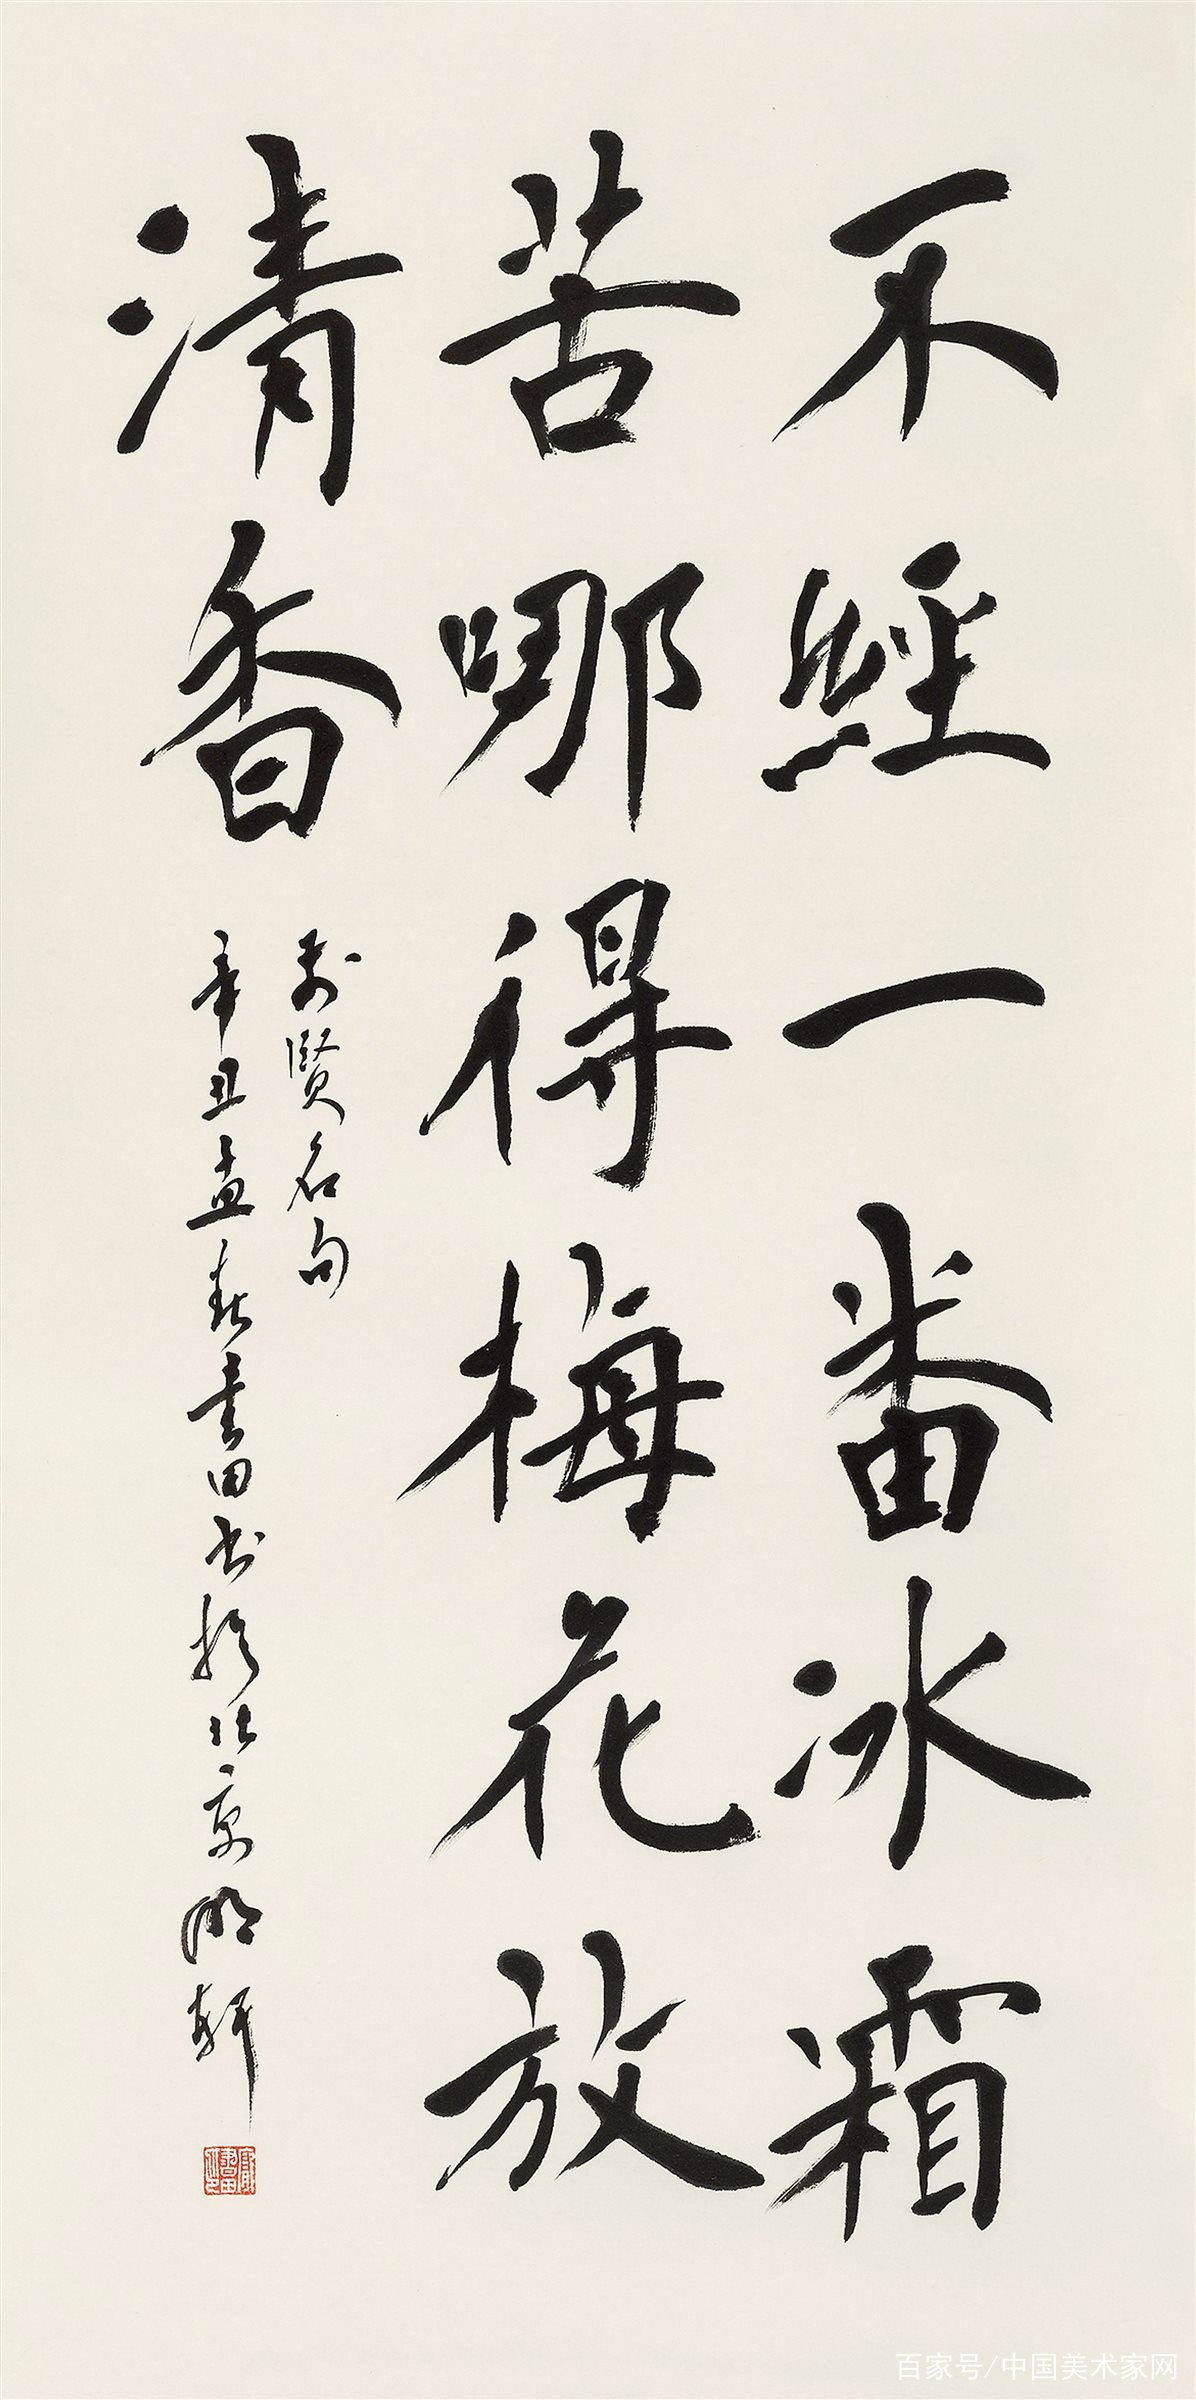 不經一番冰霜
苦哪得梅花放
清香
前賢名句
辛丑孟春書田书於北京明軒
百家号/中国美术家网